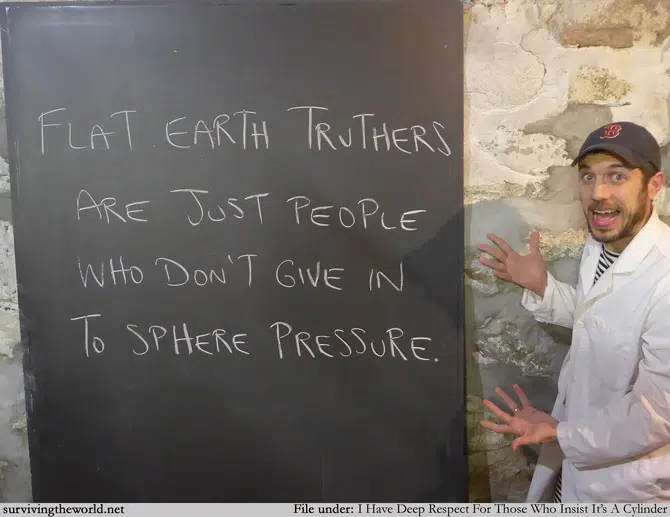 FLAT EARTH TRUTHERS
ARE JUST PEOPLE
WHO DON'T GIVE IN
TO SPHERE PRESSURE.
B
survivingtheworld.net File under: I Have Deep Respect For Those Who Insist It's A Cylinder